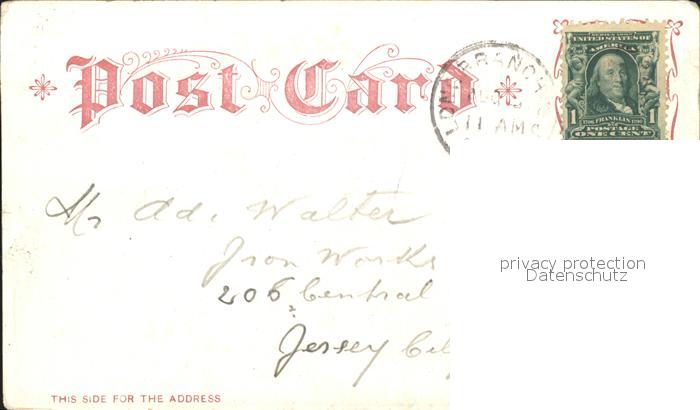 Post Card
LONG BRANCH
11 AM
SERIES 1902
UNITED STATES OF
AMERICA
1 1706 FRANKLIN 1790 1
POSTAGE
ONE CENT
Mr Ad. Walter
Iron Works
206 Central
Jersey City
privacy protection
Datenschutz
THIS SIDE FOR THE ADDRESS